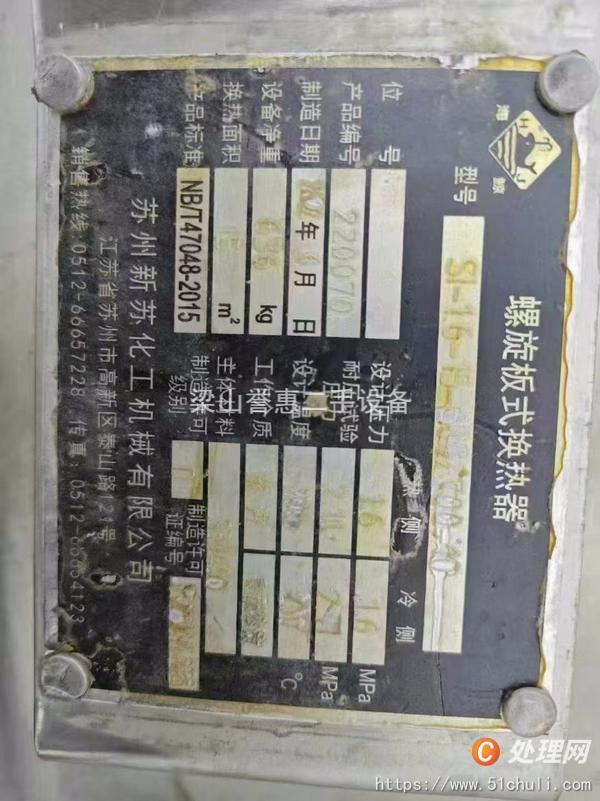 海 H J 鲸
螺旋板式换热器
型号
位 号
产品编号 220070
制造日期 年 月 日
设备净重 635 kg
换热面积 15 m²
产品标准 NB/T47048-2015
热 侧 冷 侧
设计压力 MPa
耐压试验 MPa
设计温度 ℃
工作介质
主体材料
制造许可级别
制造许可证编号
苏州新苏化工机械有限公司
江苏省苏州市高新区泰山路121号
销售热线:0512-66657228 传真:0512-66654123
梁山智惠
设备
C处理网
https://www.51chuli.com/